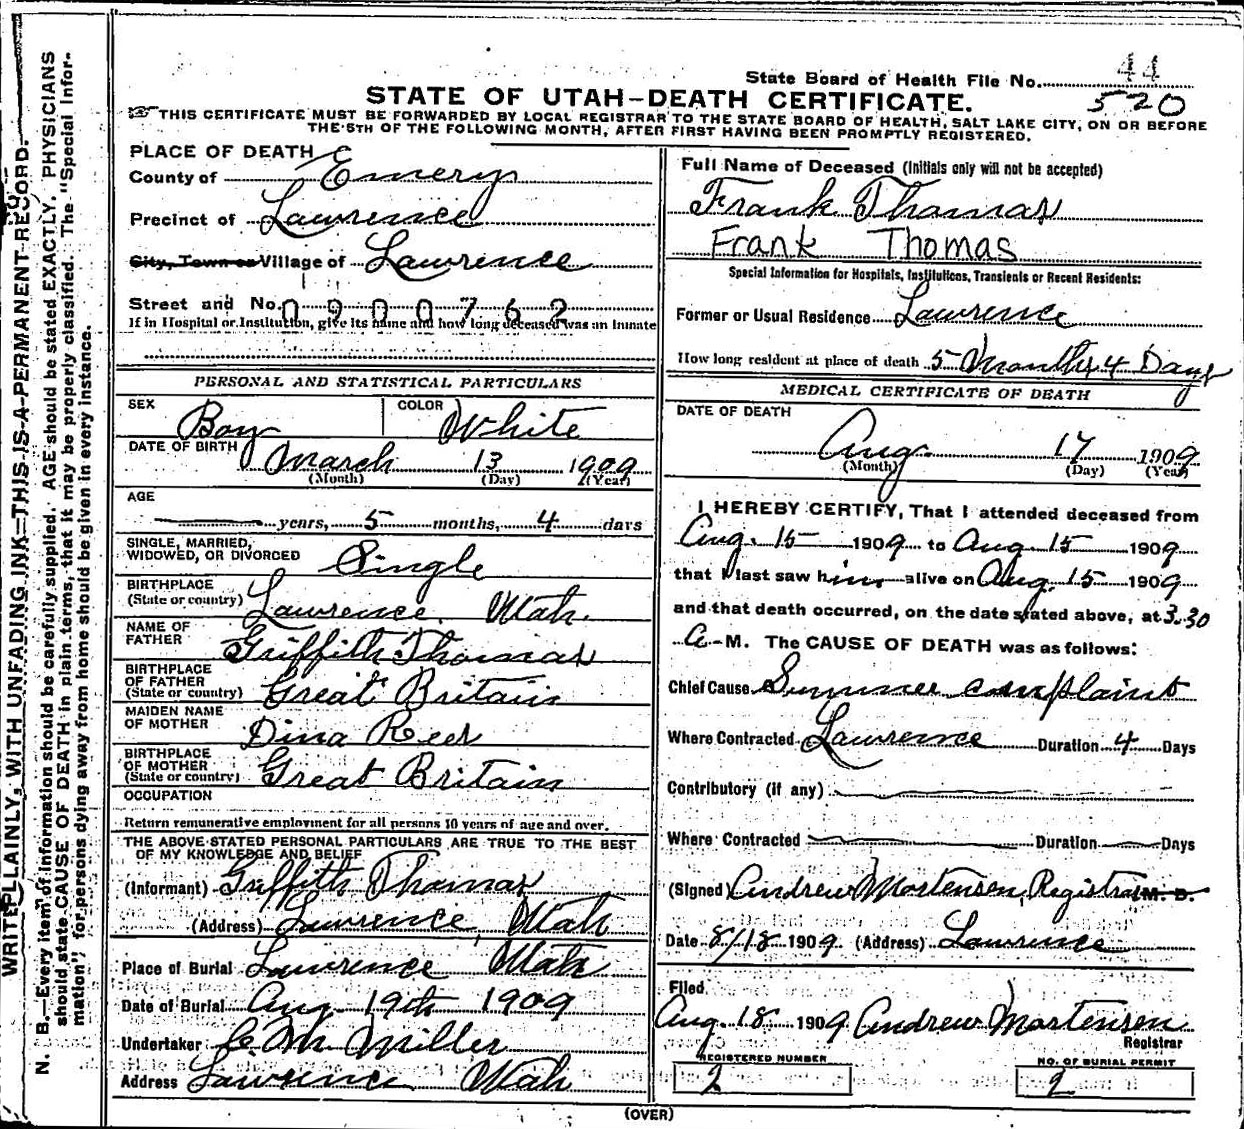 State Board of Health File No. 44
520
STATE OF UTAH—DEATH CERTIFICATE.
THIS CERTIFICATE MUST BE FORWARDED BY LOCAL REGISTRAR TO THE STATE BOARD OF HEALTH, SALT LAKE CITY, ON OR BEFORE
THE 5TH OF THE FOLLOWING MONTH, AFTER FIRST HAVING BEEN PROMPTLY REGISTERED.
WRITE PLAINLY, WITH UNFADING INK—THIS IS A PERMANENT RECORD.
N. B.—Every item of information should be carefully supplied. AGE should be stated EXACTLY. PHYSICIANS
should state CAUSE OF DEATH in plain terms, that it may be properly classified. The "Special Infor-
mation" for persons dying away from home should be given in every instance.
PLACE OF DEATH
County of Emery
Precinct of Lawrence
City, Town or Village of Lawrence
Street and No. 0900762
If in Hospital or Institution, give its name and how long deceased was an inmate
PERSONAL AND STATISTICAL PARTICULARS
SEX Boy COLOR White
DATE OF BIRTH March 13 1909
(Month) (Day) (Year)
AGE
years, 5 months, 4 days
SINGLE, MARRIED,
WIDOWED, OR DIVORCED Single
BIRTHPLACE
(State or country) Lawrence. Utah.
NAME OF
FATHER Griffith Thomas
BIRTHPLACE
OF FATHER
(State or country) Great Britain
MAIDEN NAME
OF MOTHER Dina Rees
BIRTHPLACE
OF MOTHER
(State or country) Great Britain
OCCUPATION
Return remunerative employment for all persons 10 years of age and over.
THE ABOVE STATED PERSONAL PARTICULARS ARE TRUE TO THE BEST
OF MY KNOWLEDGE AND BELIEF
(Informant) Griffith Thomas
(Address) Lawrence, Utah
Place of Burial Lawrence Utah
Date of Burial Aug 19th 1909
Undertaker C. M. Miller
Address Lawrence Utah
Full Name of Deceased (Initials only will not be accepted)
Frank Thomas
Frank Thomas
Special Information for Hospitals, Institutions, Transients or Recent Residents:
Former or Usual Residence Lawrence
How long resident at place of death 5 Months 4 Days
MEDICAL CERTIFICATE OF DEATH
DATE OF DEATH
Aug. 17 1909
(Month) (Day) (Year)
I HEREBY CERTIFY, That I attended deceased from
Aug. 15 1909 to Aug. 15 1909
that I last saw him alive on Aug. 15 1909
and that death occurred, on the date stated above, at 3.30
A-M. The CAUSE OF DEATH was as follows:
Chief Cause Summer complaint
Where Contracted Lawrence Duration 4 Days
Contributory (if any)
Where Contracted Duration Days
(Signed) Andrew Mortensen, Registrar M. D.
Date 8/18 1909. (Address) Lawrence
Filed
Aug. 18 1909 Andrew Mortensen
Registrar
REGISTERED NUMBER
2
NO. OF BURIAL PERMIT
2
(OVER)